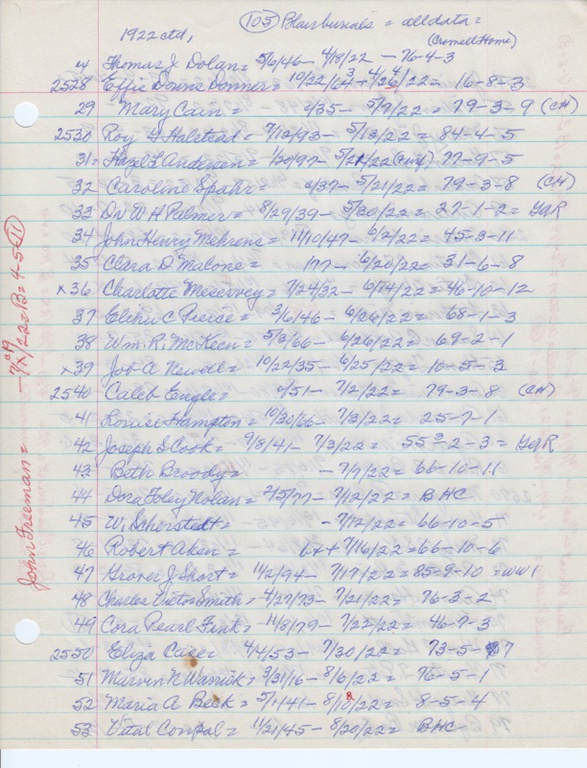 (105) Blair burials = all data =
1922 ctd,
(Crowell Home)
Thomas J. Dolan = 5/6/46 - 4/18/22 - 76-4-3
2528 Effie Downs Donner = 10/22/64 - 4/26/22 = 16-8-3
29 Mary Cain = /35 - 5/7/22 = 79-3-9 (CH)
2530 Roy Halstead = 7/12/93 - 5/13/22 = 84-4-5
31 = Hazel L Andersen = 1/20/97 - 5/21/22 77-9-5
32 Caroline Spahr = /37 - 5/21/22 = 79-3-8 (CH)
33 Dr W H Palmer = 8/29/39 - 5/30/22 = 27-1-2 = GAR
34 John Henry Mehrens = 11/10/47 - 6/2/22 = 45-3-11
35 Clara D Malone = 177 - 6/20/22 = 31-6-8
x36 Charlotte Meservey = 7/24/32 - 6/14/22 = 46-10-12
37 Elihu C Pierce = 3/6/46 - 6/26/22 = 68-1-3
38 Wm. R. McKeen = 5/3/66 - 6/26/22 = 69-2-1
x39 Job A Newell = 10/22/35 - 6/25/22 = 10-5-3
2540 Caleb Engle = /51 - 7/2/22 = 79-3-8 (CH)
41 Louise Hampton = 10/30/66 - 7/3/22 = 25-7-1
42 Joseph S Cook = 9/8/41 - 7/3/22 = 55-2-3 = GAR
43 Beth Broody = - 7/9/22 = 66-10-11
44 Dora Foley Nolan = 2/5/77 - 7/12/22 = BHC
45 W. Scherstedt = - 7/12/22 = 66-10-5
46 Robert Aken = 7/16/22 = 66-10-6
47 Grover J Short = 11/2/94 - 7/17/22 = 85-9-10 = WW1
48 Charles Victor Smith = 4/27/73 - 7/21/22 = 76-3-2
49 Cora Pearl Fink = 11/8/79 - 7/22/22 = 46-7-3
2550 Eliza Case = 4/4/53 - 7/30/22 = 73-5-7
51 Marvin N Warrick = 3/31/16 - 8/6/22 = 76-5-1
52 Maria A Beck = 5/1/41 - 8/10/22 = 8-5-4
53 Vital Conpal = 11/21/45 - 8/20/22 = BHC
John Freeman = - 7/ /22 = B = 4-5-(11)